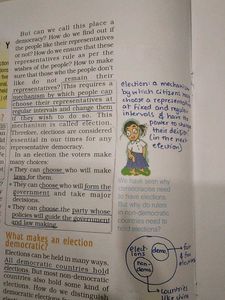 But can we call this place a
democracy? How do we find out if
the people like their representatives
or not? How do we ensure that these
representatives rule as per the
wishes of the people? How to make
sure that those who the people don't
like do not remain their
representatives? This requires a
mechanism by which people can
choose their representatives at
regular intervals and change them
if they wish to do so. This
mechanism is called election.
Therefore, elections are considered
essential in our times for any
representative democracy.
In an election the voters make
many choices:
• They can choose who will make
laws for them.
• They can choose who will form the
government and take major
decisions.
• They can choose the party whose
policies will guide the government
and law making.
What makes an election
democratic?
Elections can be held in many ways.
All democratic countries hold
elections. But most non-democratic
countries also hold some kind of
elections. How do we distinguish
election: a mechanism
by which citizens
choose a representative
at fixed and regular
intervals & have the
power to change
their decision
(in the next
election)
We have seen why
democracies need
to have elections.
But why do rulers
in non-democratic
countries need to
hold elections?
elect
ions
demo
non
demo
free
& fair
elections
countries
like china